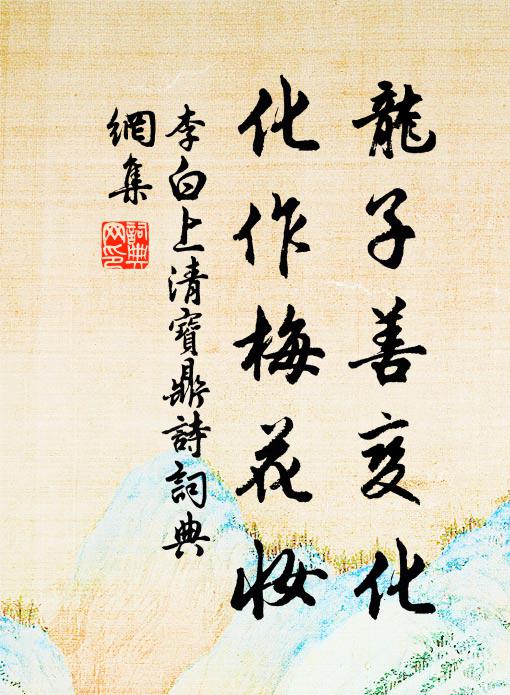 龍子善变化
化作梅花妝
李白上清寶鼎詩詞典
網集
詞典
网印